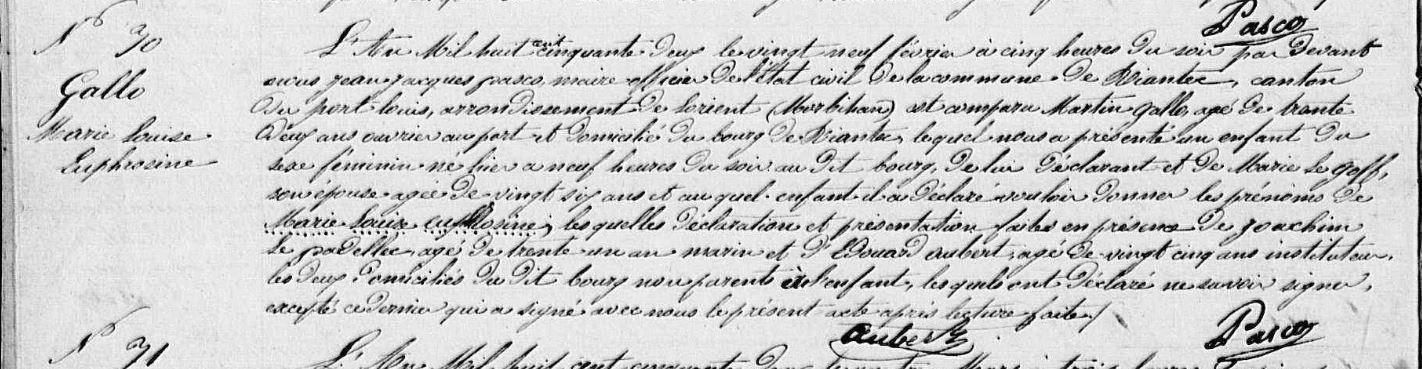 Pasco
N° 70
Gallo
Marie Louise
Euphrosine
L'An Mil huit cent cinquante deux le vingt neuf février à cinq heures du soir par devant
nous Jean Jacques Pasco, maire officier de l'état civil de la commune de Riantec, canton
du port Louis, arrondissement de Lorient (Morbihan) est comparu Martin Gallo, agé de trente
deux ans ouvrier au port et domicilié du bourg de Riantec, lequel nous a présenté un enfant du
sexe féminin né hier a neuf heures du soir au dit bourg, de lui déclarant et de Marie Le Goff,
son épouse agée de vingt six ans et au quel enfant il a déclaré vouloir donner les prénoms de
Marie Louise Euphrosine, les quelles déclaration et présentation faites en présence de Joachim
Le padellec, agé de trente un an marin et d'Edouard Aubert, agé de vingt cinq ans instituteur,
les deux domiciliés du dit bourg non parents de l'enfant, lesquels ont déclaré ne savoir signer,
excepté ce dernier qui a signé avec nous le présent acte après lecture faite /
Aubert Pasco
N° 71
L'An Mil huit cent cinquante deux